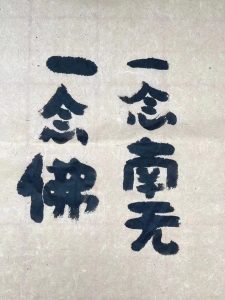 一念南无
一念佛